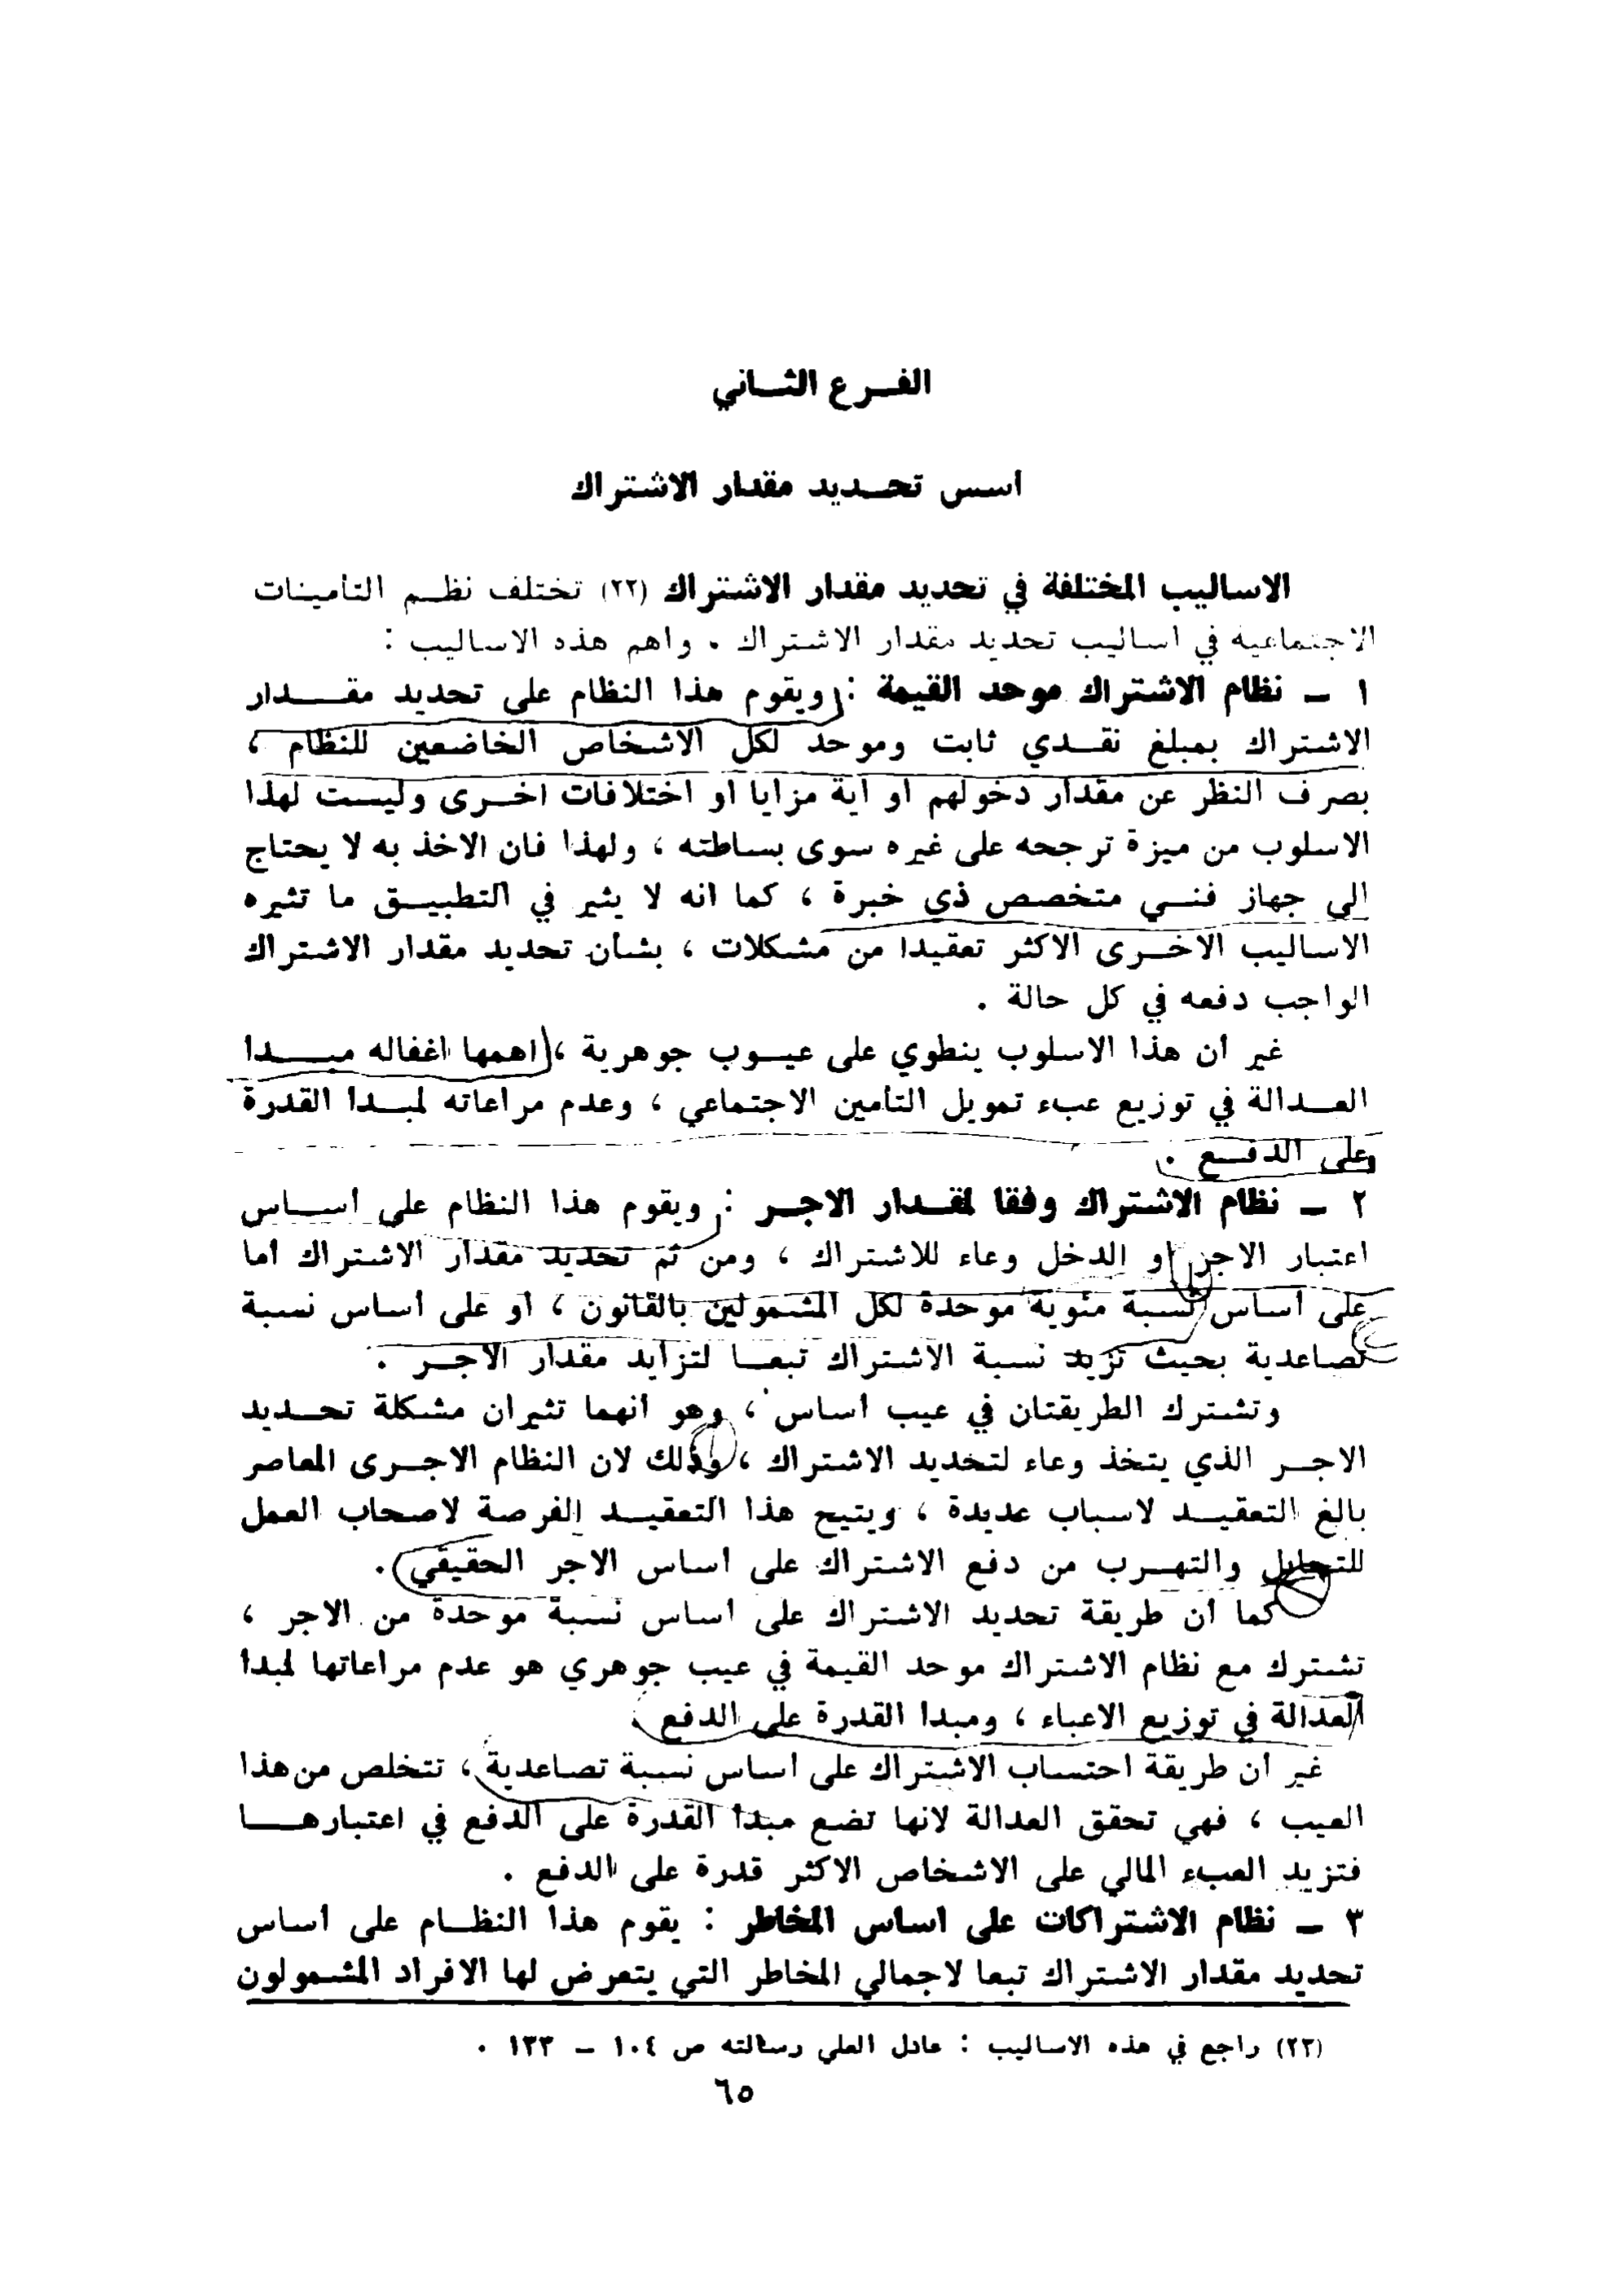 الفرع الثاني
اسس تحديد مقدار الاشتراك
الاساليب المختلفة في تحديد مقدار الاشتراك (٢٢) تختلف نظم التأمينات
الاجتماعية في اساليب تحديد مقدار الاشتراك . واهم هذه الاساليب :
١ - نظام الاشتراك موحد القيمة : ويقوم هذا النظام على تحديد مقدار
الاشتراك بمبلغ نقدي ثابت وموحد لكل الاشخاص الخاضعين للنظام ،
بصرف النظر عن مقدار دخولهم او اية مزايا او اختلافات اخرى وليست لهذا
الاسلوب من ميزة ترجحه على غيره سوى بساطته ، ولهذا فان الاخذ به لا يحتاج
الى جهاز فني متخصص ذي خبرة ، كما انه لا يثير في التطبيق ما تثيره
الاساليب الاخرى الاكثر تعقيدا من مشكلات ، بشأن تحديد مقدار الاشتراك
الواجب دفعه في كل حالة .
غير أن هذا الاسلوب ينطوي على عيوب جوهرية ، اهمها اغفاله مبدأ
العدالة في توزيع عبء تمويل التأمين الاجتماعي ، وعدم مراعاته لمبدأ القدرة
على الدفع .
٢ - نظام الاشتراك وفقا لمقدار الاجر : ويقوم هذا النظام على أساس
اعتبار الاجر او الدخل وعاء للاشتراك ، ومن ثم تحديد مقدار الاشتراك أما
على أساس نسبة مئوية موحدة لكل المشمولين بالقانون ، أو على أساس نسبة
تصاعدية بحيث تزيد نسبة الاشتراك تبعا لتزايد مقدار الاجر .
وتشترك الطريقتان في عيب أساس ، وهو أنهما تثيران مشكلة تحديد
الاجر الذي يتخذ وعاء لتحديد الاشتراك ، وذلك لان النظام الاجرى المعاصر
بالغ التعقيد لاسباب عديدة ، ويتيح هذا التعقيد الفرصة لاصحاب العمل
للتحايل والتهرب من دفع الاشتراك على أساس الاجر الحقيقي .
كما أن طريقة تحديد الاشتراك على أساس نسبة موحدة من الاجر ،
تشترك مع نظام الاشتراك موحد القيمة في عيب جوهري هو عدم مراعاتها لمبدأ
العدالة في توزيع الاعباء ، ومبدا القدرة على الدفع .
غير أن طريقة احتساب الاشتراك على أساس نسبة تصاعدية ، تتخلص من هذا
العيب ، فهي تحقق العدالة لانها تضع مبدأ القدرة على الدفع في اعتبارها
فتزيد العبء المالي على الاشخاص الاكثر قدرة على الدفع .
٣ - نظام الاشتراكات على اساس المخاطر : يقوم هذا النظام على أساس
تحديد مقدار الاشتراك تبعا لاجمالي المخاطر التي يتعرض لها الافراد المشمولون
(٢٢) راجع في هذه الاساليب : عادل العلي رسالته ص ١٠٤ - ١٣٣ .
٦٥